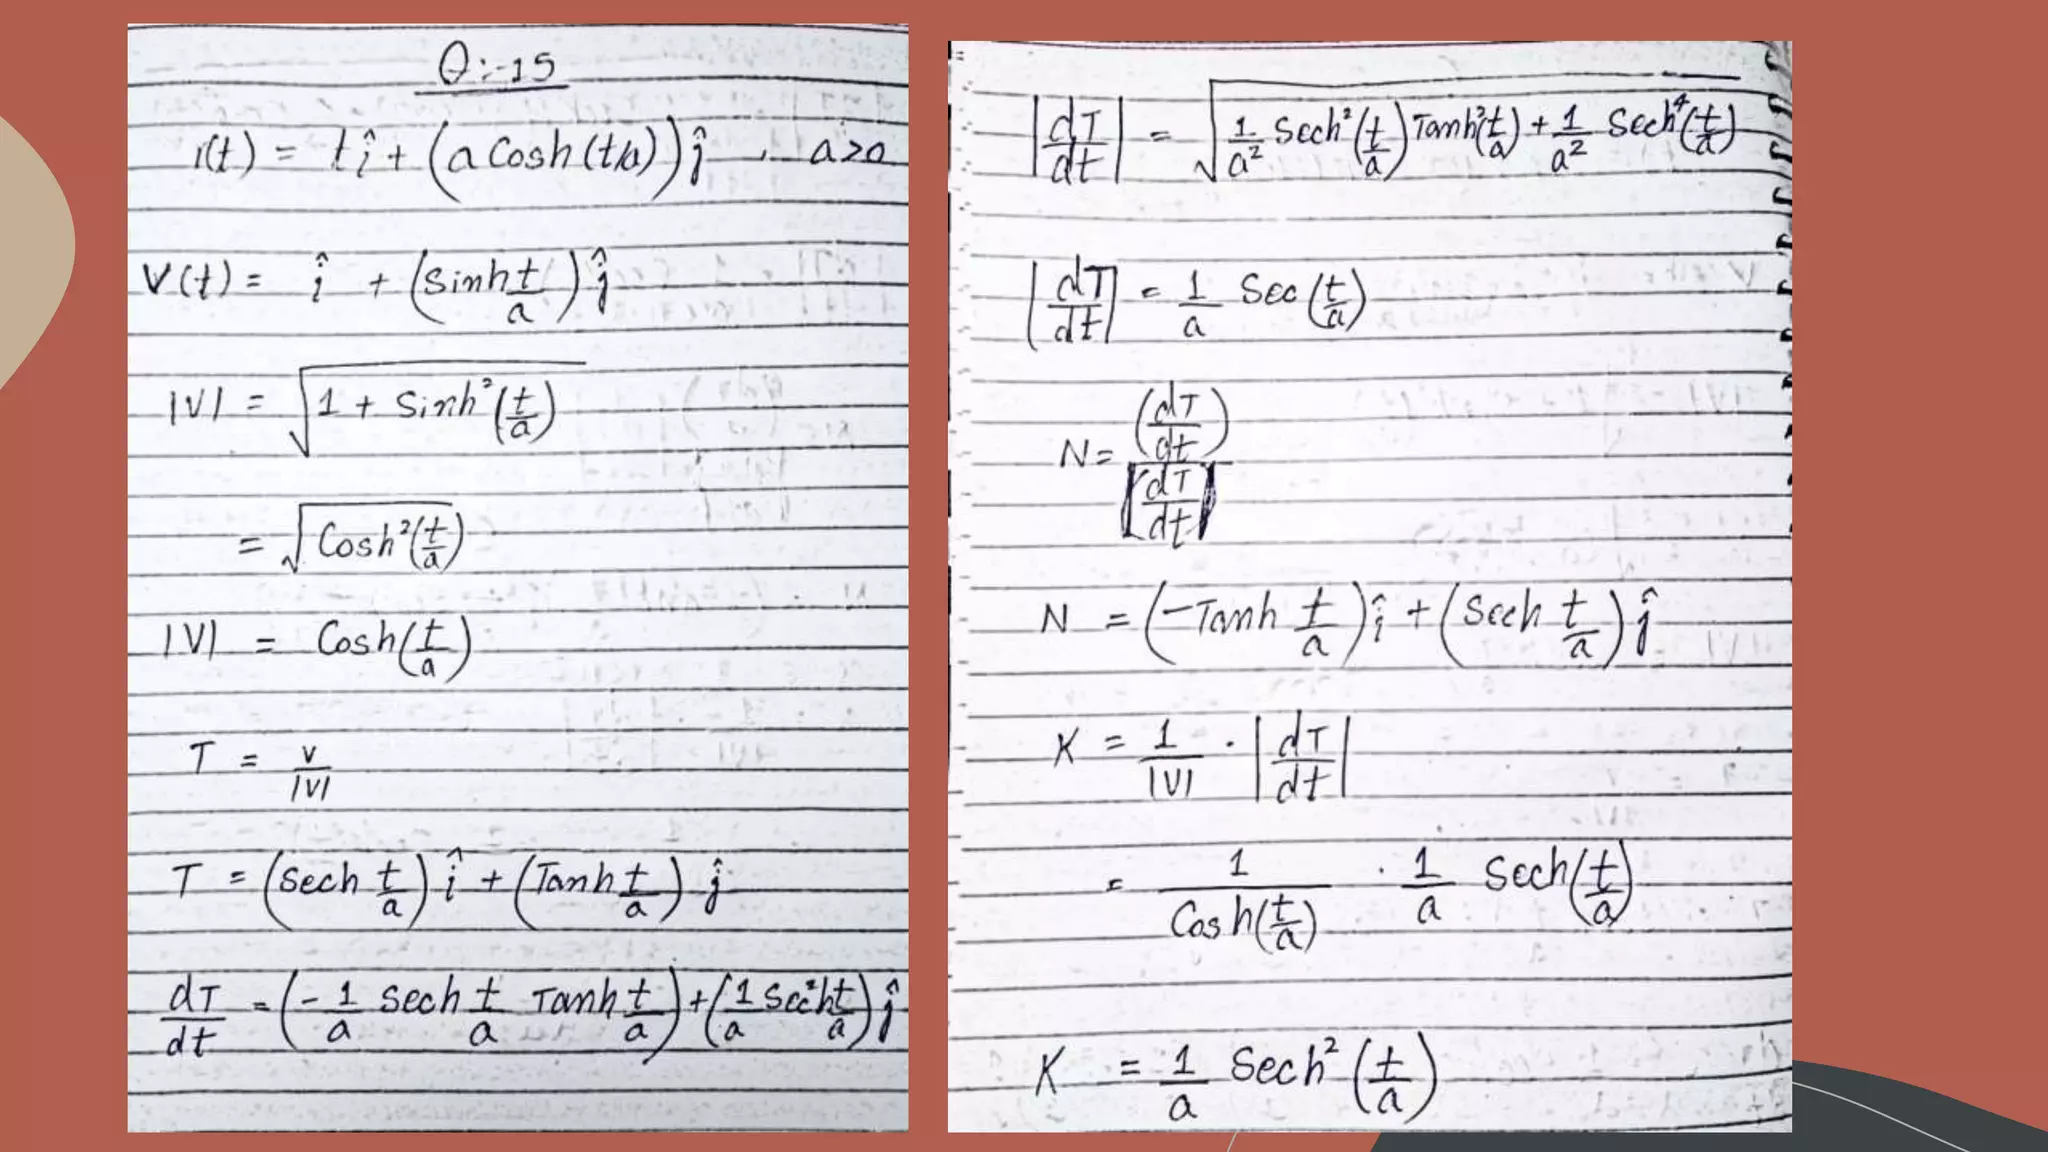 Q:-15
r(t) = t î + (a Cosh(t/a)) ĵ , a>0
V(t) = î + (Sinh t/a) ĵ
|V| = √(1 + Sinh²(t/a))
= √(Cosh²(t/a))
|V| = Cosh(t/a)
T = V/|V|
T = (Sech t/a) î + (Tanh t/a) ĵ
dT/dt = (-1/a Sech t/a Tanh t/a) + (1/a Sech² t/a) ĵ
|dT/dt| = √(1/a² Sech²(t/a) Tanh²(t/a) + 1/a² Sech⁴(t/a))
|dT/dt| = 1/a Sec (t/a)
N = (dT/dt)/|dT/dt|
N = (-Tanh t/a) î + (Sech t/a) ĵ
K = 1/|V| · |dT/dt|
= 1/Cosh(t/a) · 1/a Sech(t/a)
K = 1/a Sech² (t/a)